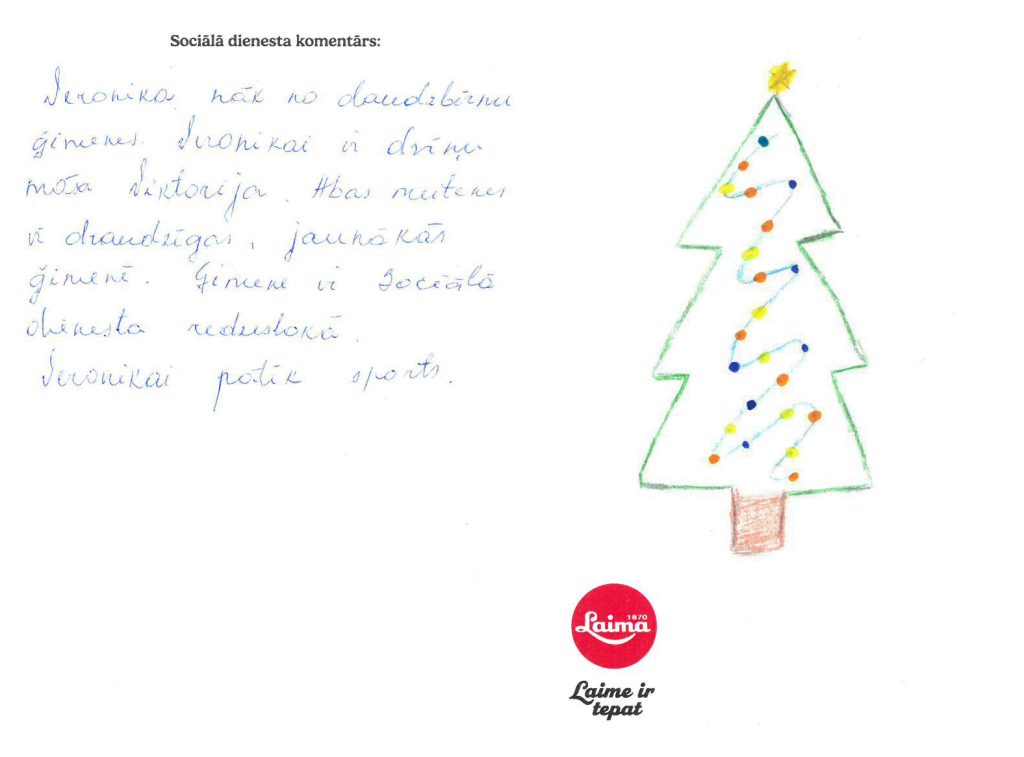 Sociālā dienesta komentārs:
Veronika nāk no daudzbērnu
ģimenes. Veronikai ir dvīņu
māsa Viktorija. Abas meitenes
ir draudzīgas, jaunākās
ģimenē. Ģimene ir Sociālā
dienesta redzeslokā.
Veronikai patīk sports.
1870
Laima
Laime ir
tepat